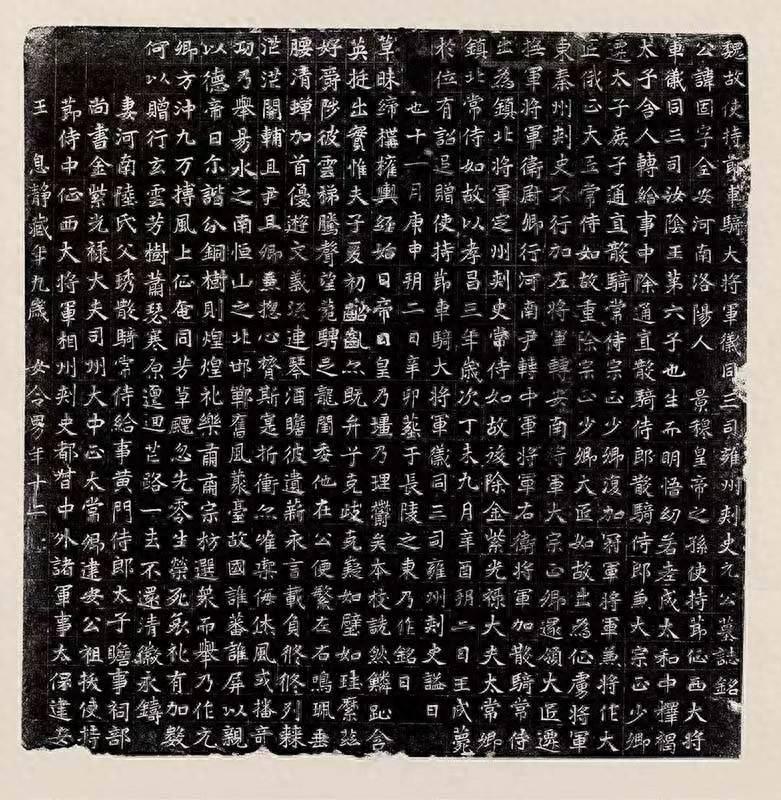 魏故使持節車騎大將軍儀同三司雍州刾史元公墓誌銘
公諱固字全安河南洛陽人　景穆皇帝之孫使持節征西大將
軍儀同三司汝陰王第六子也生而明悟幼若老成太和中擇褐
太子舍人轉給事中除通直散騎侍郎散騎侍郎兼大宗正少卿
遷太子庶子通直散騎常侍宗正少卿復加冠軍將軍兼將作大
匠俄正大匠常侍如故重除宗正少卿大匠如故出為征虜將軍
東秦州刾史不行加左將軍轉安南將軍大宗正卿還領大匠遷
撫軍將軍衛尉卿行河南尹轉中軍將軍右衛將軍加散騎常侍
出為鎮北將軍定州刾史常侍如故後除金紫光祿大夫太常卿
鎮北常侍如故以孝昌三年歲次丁未九月辛酉朔二日壬戌薨
於位有詔追贈使持節車騎大將軍儀同三司雍州刾史謚曰
　也十一月庚申朔二日辛卯葬于長陵之東乃作銘曰
草昧締構權輿經始曰帝曰皇乃壃乃理欝矣本枝詵然鱗趾含
英挺出實惟夫子爰初齠齓尒既弁予克岐克嶷如璧如珪縻茲
好爵陟彼雲梯騰聲望菀騁足龍閨委他在公便繁左右鳴珮垂
腰清蟬加首優遊文義流連琴酒瞻彼遺薪永言載負脩脩列棘
茫茫關輔且尹且卿盡惣心膂斯寔折衝尒唯禦侮休風或播奇
功乃舉易水之南恒山之北邯鄲舊風叢臺故國誰蕃誰屏以親
以德帝曰尒諧分銅樹則煌煌礼樂肅肅宗枋選衆而舉乃作元
卿方沖九万摶風上征奄同芳草飃忽先零生榮死哀礼有加數
何以贈行玄雲芳樹蕭瑟寒原邅迴芒路一去不還清徽永鑄
妻河南陸氏父琇散騎常侍給事黃門侍郎太子瞻事祠部
尚書金紫光祿大夫司州大中正太常卿建安公祖拔使持
節侍中征西大將軍相州刾史都督中外諸軍事太保建安
王　息靜藏年九歲　女令男年十二